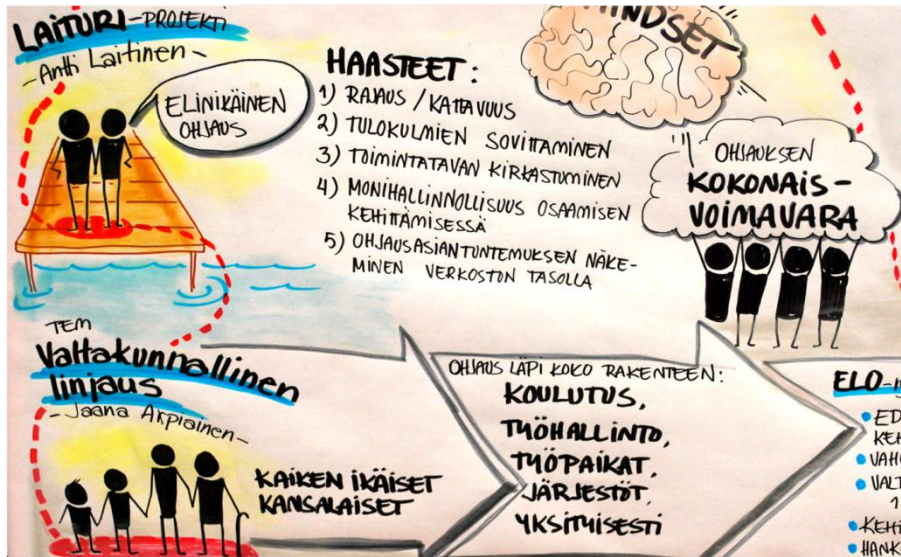 LAITURI-PROJEKTI
-Antti Laitinen-
ELINIKÄINEN
OHJAUS
HAASTEET:
1) RAJAUS / KATTAVUUS
2) TULOKULMIEN SOVITTAMINEN
3) TOIMINTATAVAN KIRKASTUMINEN
4) MONIHALLINNOLLISUUS OSAAMISEN
KEHITTÄMISESSÄ
5) OHJAUSASIANTUNTEMUKSEN NÄKE-
MINEN VERKOSTON TASOLLA
MINDSET
OHJAUKSEN
KOKONAIS-
VOIMAVARA
TEM
Valtakunnallinen
linjaus
-Jaana Arpiainen-
KAIKEN IKÄISET
KANSALAISET
OHJAUS LÄPI KOKO RAKENTEEN:
KOULUTUS,
TYÖHALLINTO,
TYÖPAIKAT,
JÄRJESTÖT,
YKSITYISESTI
ELO-
• ED
KEH
• VAH
• VALT
• KEHI
• HANK